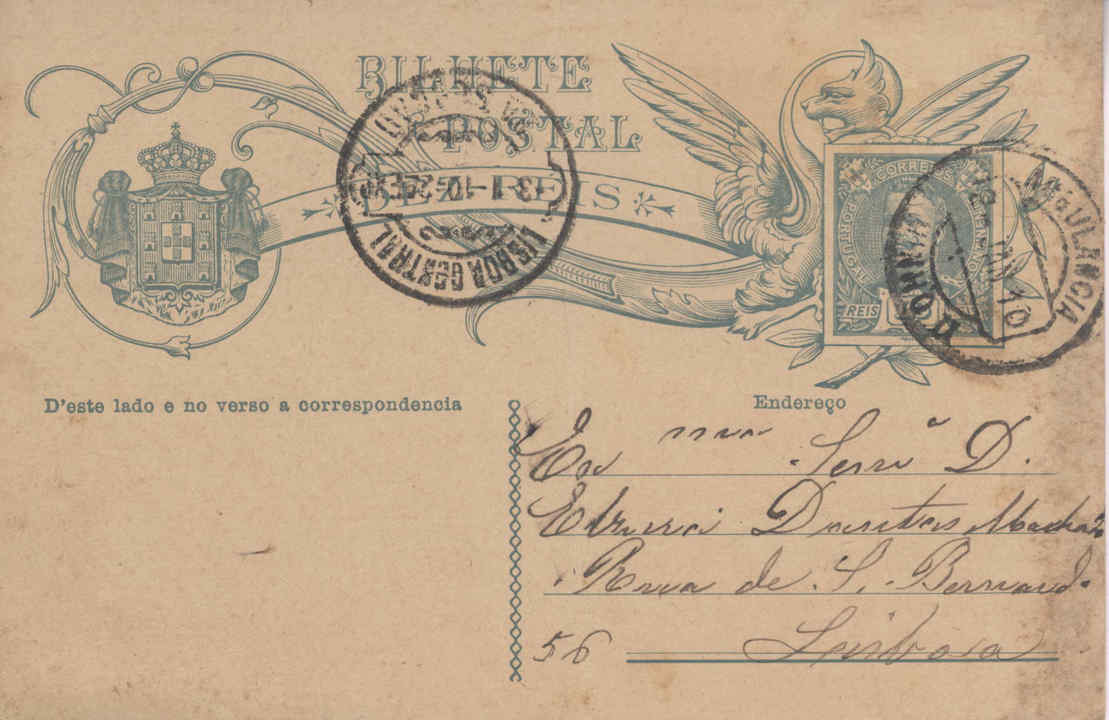 BILHETE
POSTAL
REIS
CORREIOS
REIS
LISBOA CENTRAL
13-1-10
AMBULANCIA
D'este lado e no verso a correspondencia
Endereço
Ex ma Senra D.
Dantas Machado
Rua de S. Bernardo
56 Lisboa